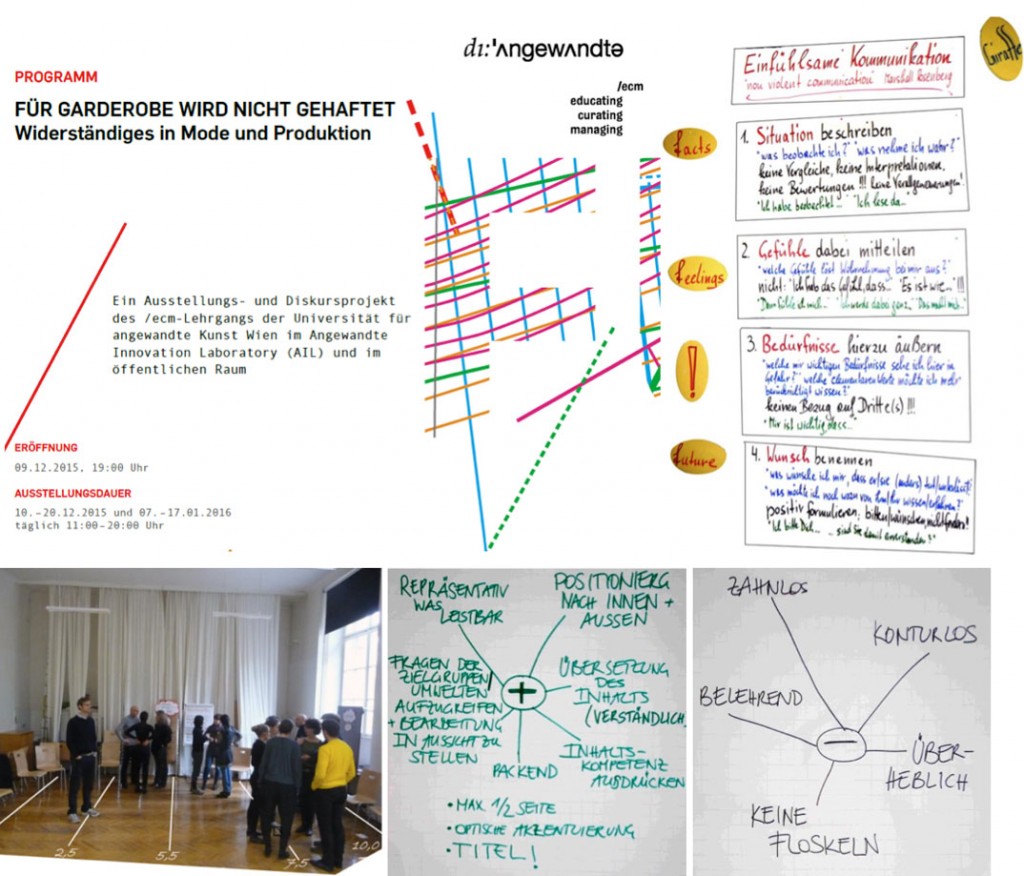 PROGRAMM
FÜR GARDEROBE WIRD NICHT GEHAFTET
Widerständiges in Mode und Produktion
Ein Ausstellungs- und Diskursprojekt
des /ecm-Lehrgangs der Universität für
angewandte Kunst Wien im Angewandte
Innovation Laboratory (AIL) und im
öffentlichen Raum
ERÖFFNUNG
09.12.2015, 19:00 Uhr
AUSSTELLUNGSDAUER
10.–20.12.2015 und 07.–17.01.2016
täglich 11:00–20:00 Uhr
dı:'ʌngewʌndtə
/ecm
educating
curating
managing
Giraffe
Einfühlsame Kommunikation
"non violent communication" Marshall Rosenberg
facts
1. Situation beschreiben
"was beobachte ich?" "was nehme ich wahr?"
keine Vergleiche, keine Interpretationen,
keine Bewertungen !!! keine Verallgemeinerungen!
"Ich habe beobachtet..." "Ich lese da..."
feelings
2. Gefühle dabei mitteilen
"welche Gefühle löst Wahrnehmung bei mir aus?"
nicht: "Ich hab das Gefühl, dass..." "Es ist wie..." !!!
!
3. Bedürfnisse hierzu äußern
"welche mir wichtigen Bedürfnisse sehe ich hier in
Gefahr? welche elementaren Werte möchte ich mehr
berücksichtigt wissen?"
keinen Bezug auf Dritte(s) !!!
"Mir ist wichtig dass..."
future
4. Wunsch benennen
"was wünsche ich mir, dass er/sie (anders) tut/
"was möchte ich noch von ihm/ihr wissen/erfahren?"
positiv formulieren, bitten/wünschen nicht fordern!
"Ich bitte Dich... ... sind Sie damit einverstanden?"
2,5
5,5
7,5
10,0
REPRÄSENTATIV
WAS
LEISTBAR
POSITIONIERG
NACH INNEN +
AUSSEN
FRAGEN DER
ZIELGRUPPEN
UMWELTEN
AUFZUGREIFEN
+ BEARBEITUNG
IN AUSSICHT ZU
STELLEN
+
ÜBERSETZUNG
DES
INHALTS
(VERSTÄNDLICH
PACKEND
INHALTS-
KOMPETENZ
AUSDRÜCKEN
• MAX 1/2 SEITE
• OPTISCHE AKZENTUIERUNG
• TITEL!
ZAHNLOS
KONTURLOS
BELEHREND
–
ÜBER-
HEBLICH
KEINE
FLOSKELN